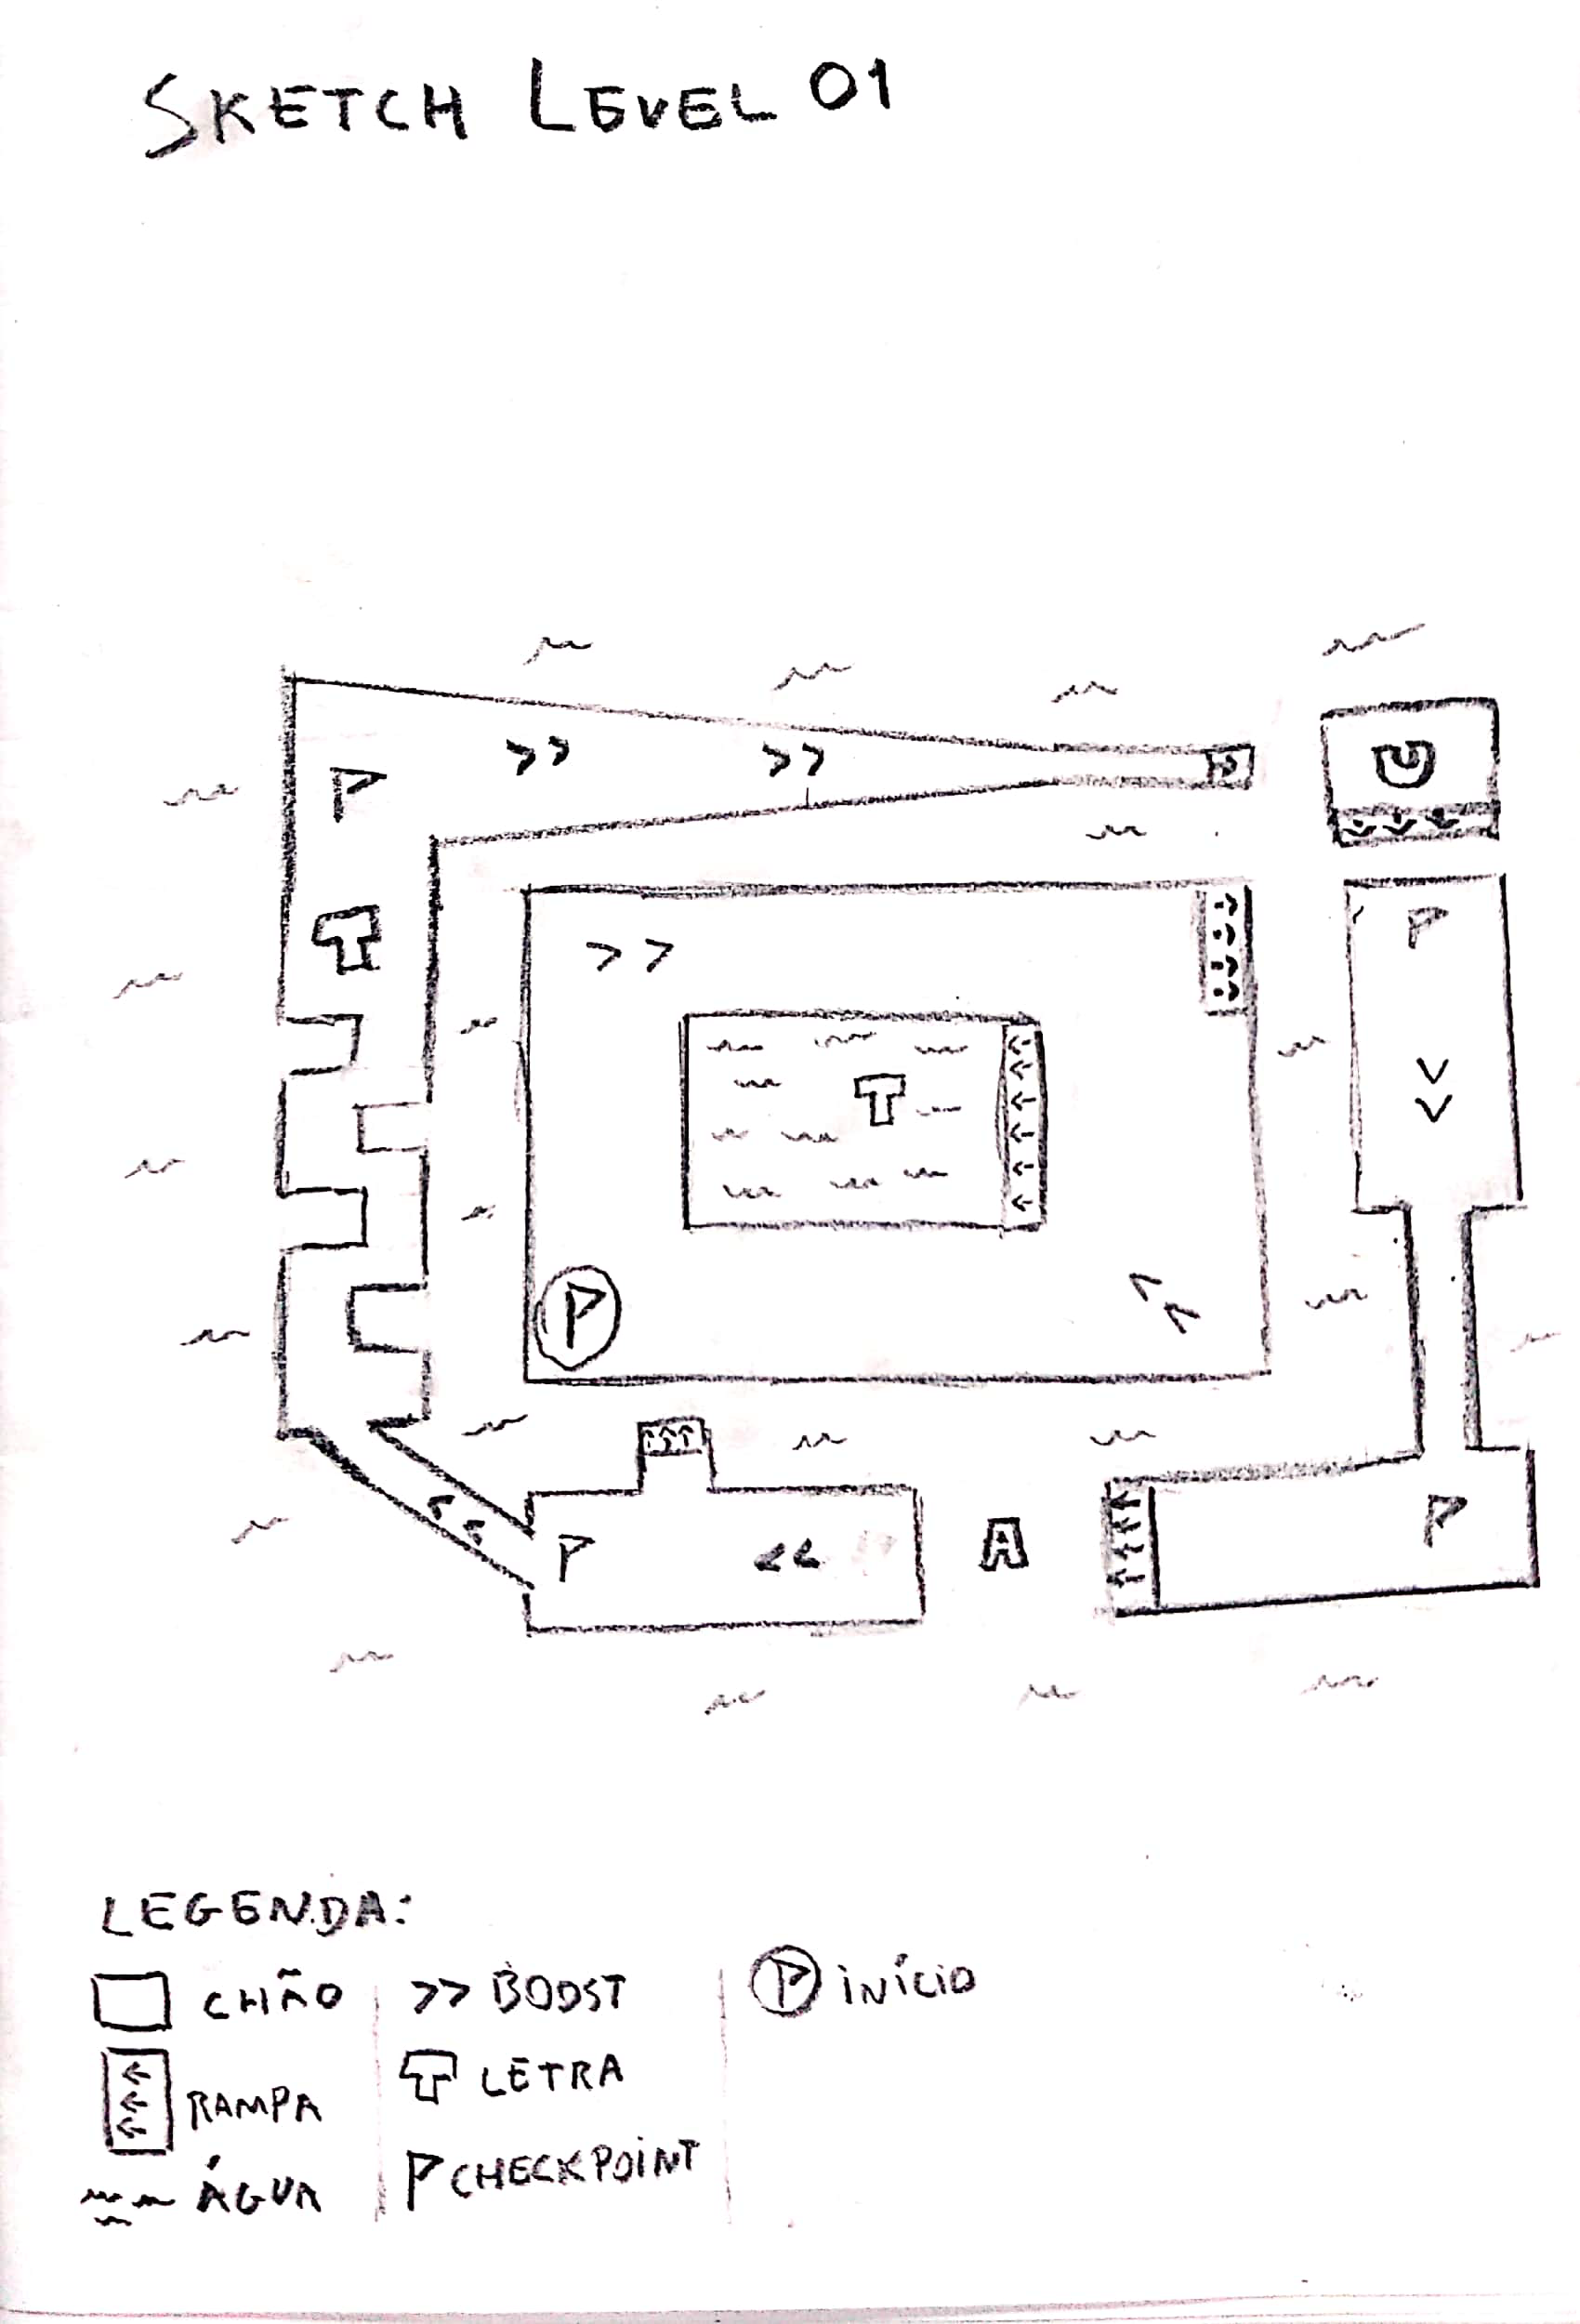 SKETCH LEVEL 01
P
>> >>
U
T
>>
P
T
P
P
<<
A
P
LEGENDA:
CHÃO
RAMPA
ÁGUA
>> BOOST
T LETRA
P CHECKPOINT
P INÍCIO